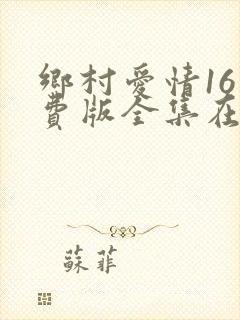 鄉村愛情16
費版全集在
蘇菲